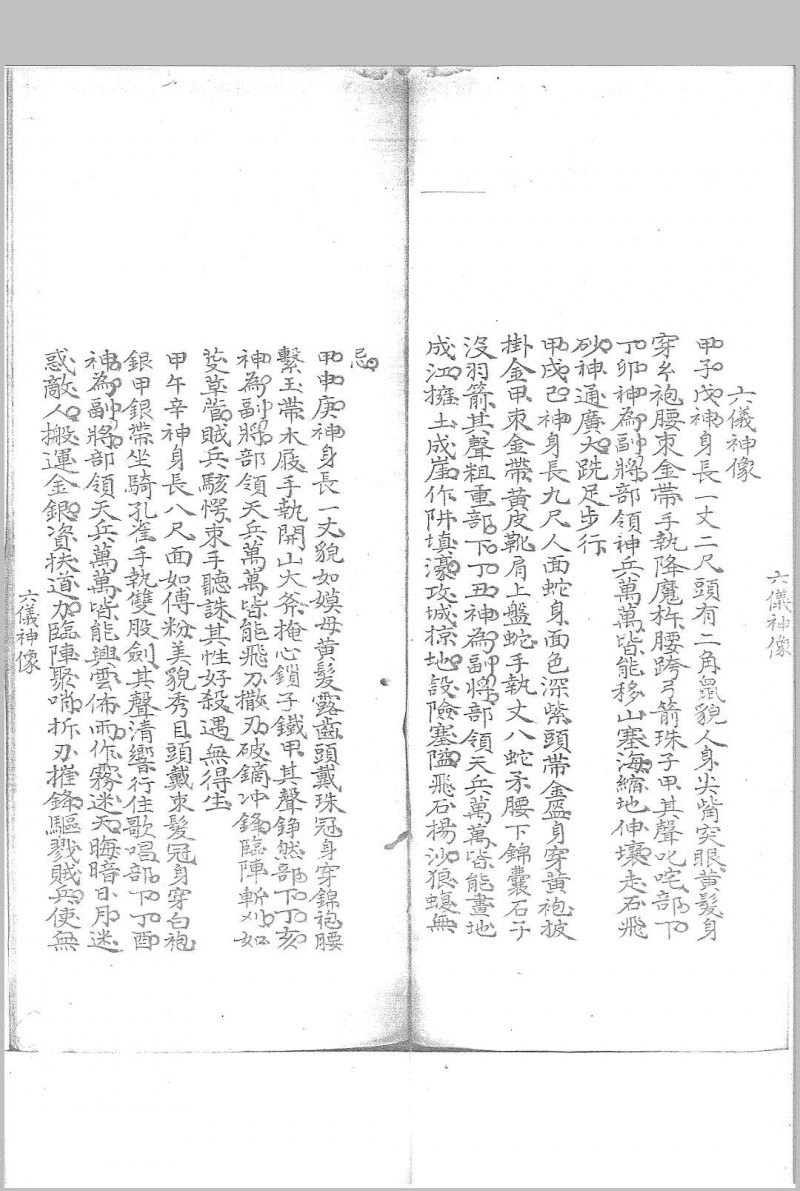 六儀神像
六儀神像
甲子戊神身長一丈二尺頭有二角鼠貌人身尖嘴突眼黃髮身
穿糹袍腰束金帶手執降魔杵腰跨弓箭珠子甲其聲叱咤部下
丁卯神為副將部領神兵萬萬皆能移山塞海縮地伸壤走石飛
砂神通廣大跣足步行
甲戌己神身長九尺人面蛇身面色深紫頭帶金盔身穿黃袍披
掛金甲束金帶黃皮靴肩上盤蛇手執丈八蛇矛腰下錦囊石子
沒羽箭其聲粗重部下丁丑神為副將部領天兵萬萬皆能畫地
成江擁土成崖作阱填濠攻城掠地設險塞隘飛石揚沙狼蝮無
忌
甲申庚神身長一丈貌如嫫母黃髮露齒頭戴珠冠身穿錦袍腰
繫玉帶木屐手執開山大斧掩心鎖子鐵甲其聲錚然部下丁亥
神為副將部領天兵萬萬皆能飛刀撒刃破鏑冲鋒臨陣斬刈如
芟草菅賊兵駭愕束手聽誅其性好殺遇無得生
甲午辛神身長八尺面如傅粉美貌秀目頭戴束髮冠身穿白袍
銀甲銀帶坐騎孔雀手執雙股劍其聲清響行住歌唱部下丁酉
神為副將部領天兵萬萬皆能興雲佈雨作霧迷天晦暗日月迷
惑敵人搬運金銀資扶道力臨陣聚哨折刃摧鋒驅戮賊兵使無
六儀神像